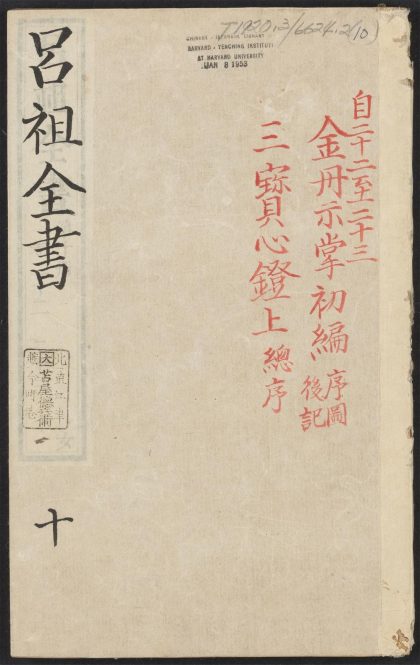 T1920.3/6624.2(10)
CHINESE - JAPANESE LIBRARY
HARVARD - YENCHING INSTITUTE
AT HARVARD UNIVERSITY
JAN 8 1953
自二十二至二十三
金丹示掌初編 序圖
後記
三寶心鐙上 總序
呂祖全書
十